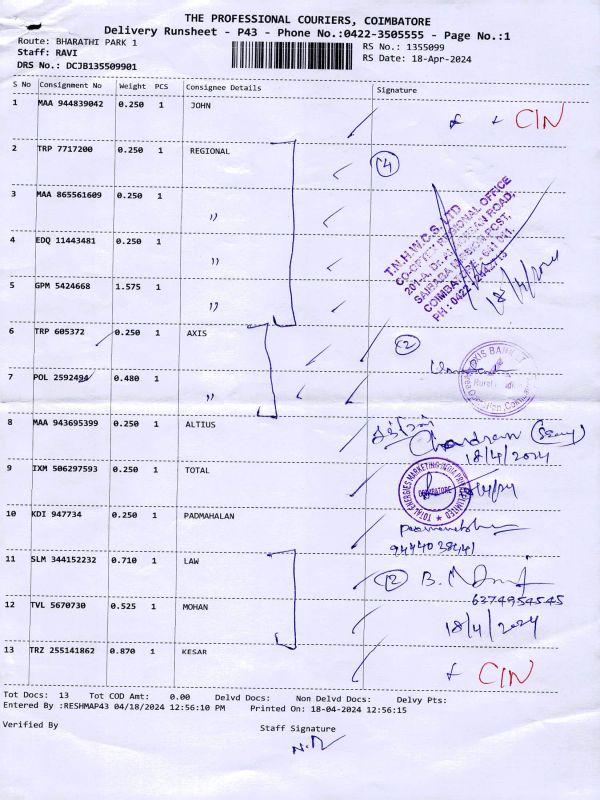 THE PROFESSIONAL COURIERS, COIMBATORE
Delivery Runsheet - P43 - Phone No.:0422-3505555 - Page No.:1
Route: BHARATHI PARK 1
RS No.: 1355099
Staff: RAVI
RS Date: 18-Apr-2024
DRS No.: DCJB135509901
S No Consignment No Weight PCS Consignee Details Signature
1 MAA 944839042 0.250 1 JOHN CIN
2 TRP 7717200 0.250 1 REGIONAL (4)
3 MAA 865561609 0.250 1 ,,
4 EDQ 11443481 0.250 1 ,,
5 GPM 5424668 1.575 1 ,,
T.N.H.W.C.S. LTD
CO-OPTEX REGIONAL OFFICE
18/4/2024
6 TRP 605372 0.250 1 AXIS (2)
AXIS BANK
7 POL 2592494 0.480 1 ,,
8 MAA 943695399 0.250 1 ALTIUS
Chandran
18/4/2024
9 IXM 506297593 0.250 1 TOTAL
TOTAL ENERGIES MARKETING INDIA PRIVATE LIMITED
COIMBATORE
10 KDI 947734 0.250 1 PADMAHALAN
11 SLM 344152232 0.710 1 LAW (2)
6374954545
12 TVL 5670730 0.525 1 MOHAN
18/4/2024
13 TRZ 255141862 0.870 1 KESAR CIN
Tot Docs: 13 Tot COD Amt: 0.00 Delvd Docs: Non Delvd Docs: Delvy Pts:
Entered By :RESHMAP43 04/18/2024 12:56:10 PM Printed On: 18-04-2024 12:56:15
Verified By
Staff Signature